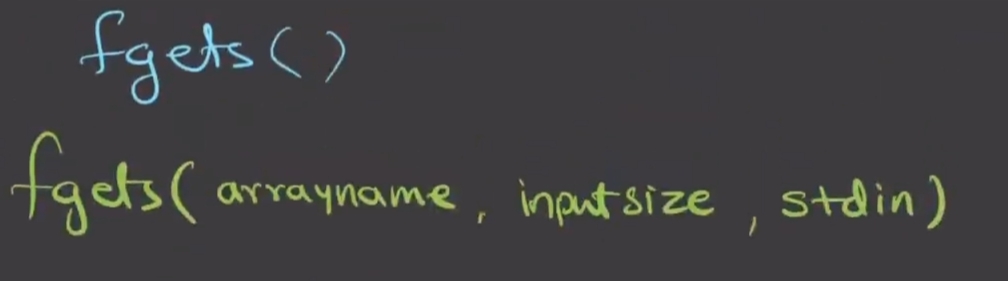 fgets()
fgets( arrayname, inputsize, stdin)